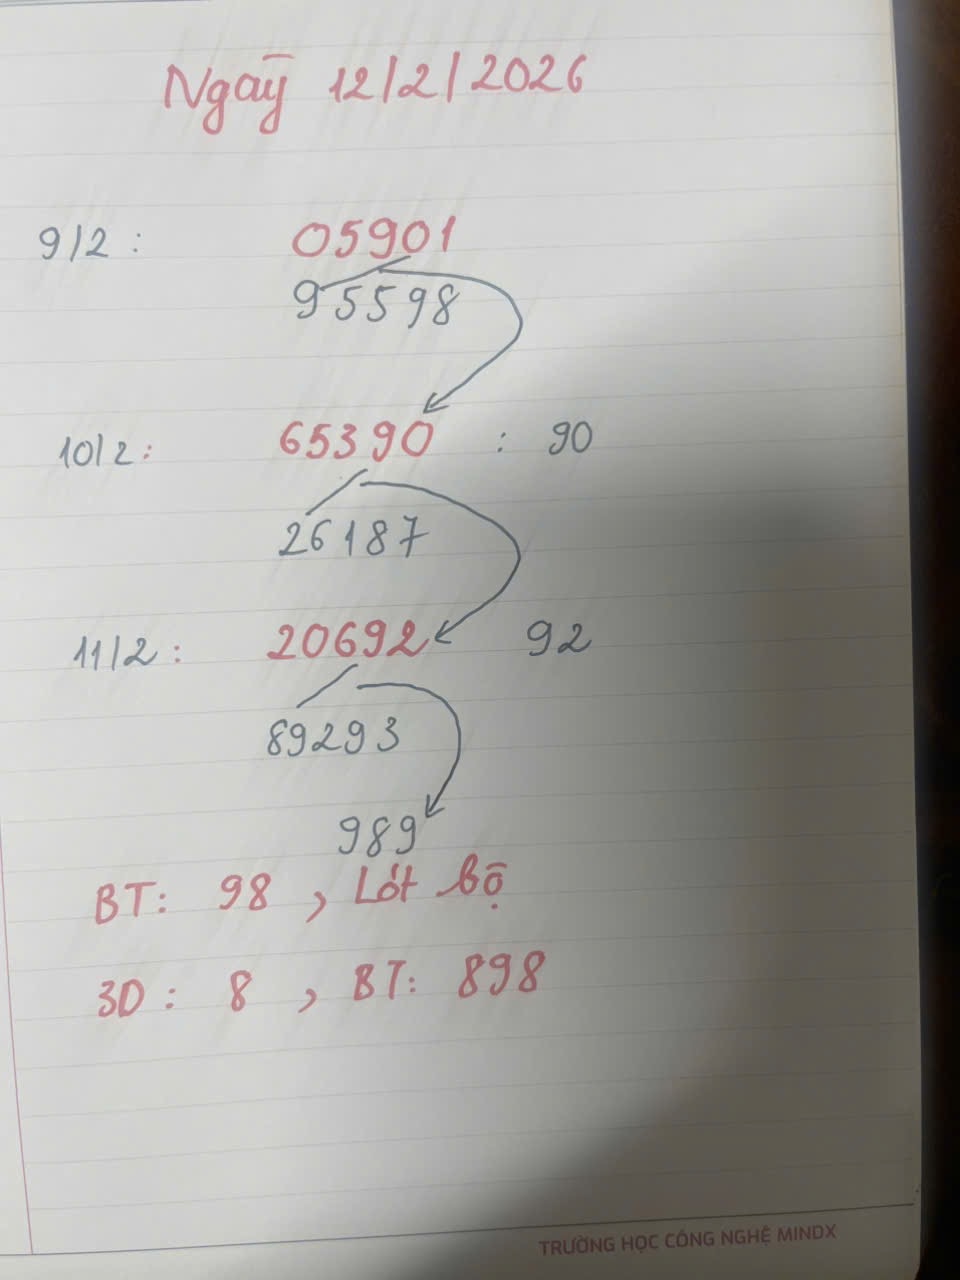 Ngaȳ 12/2/2026
9/2 : 05901
95598
10/2 : 65390 : 90
26187
11/2 : 20692 92
89293
989
BT: 98 , Lót bộ
3D : 8 , BT: 898
TRƯỜNG HỌC CÔNG NGHỆ MINDX